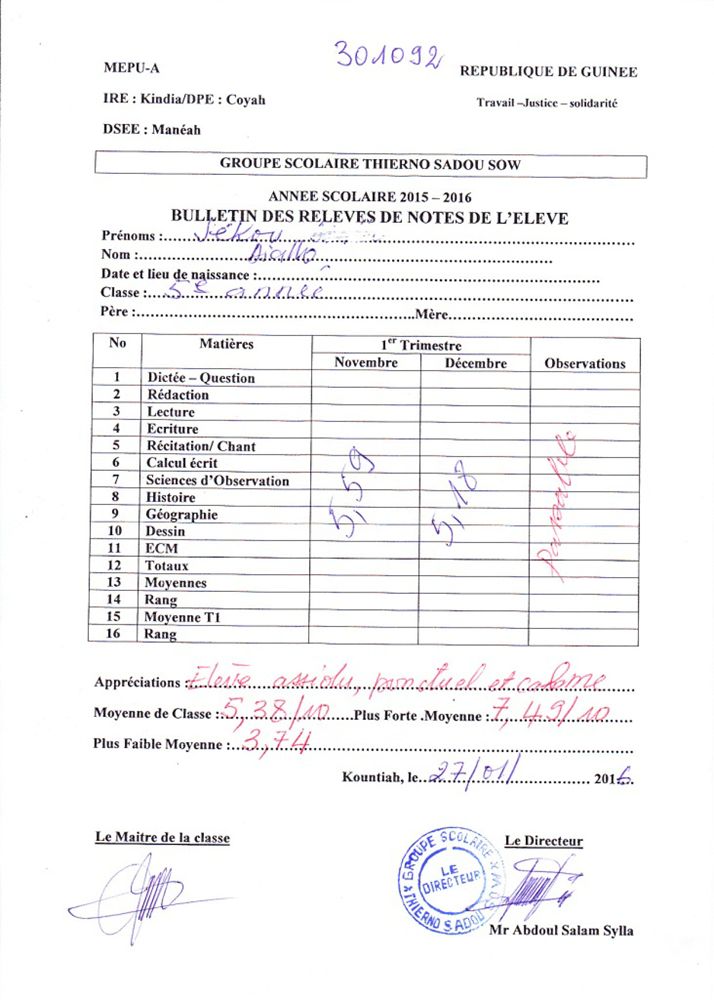 301092
MEPU-A
REPUBLIQUE DE GUINEE
IRE : Kindia/DPE : Coyah
Travail –Justice – solidarité
DSEE : Manéah
GROUPE SCOLAIRE THIERNO SADOU SOW
ANNEE SCOLAIRE 2015 – 2016
BULLETIN DES RELEVES DE NOTES DE L'ELEVE
Prénoms : Sékou
Nom : Diallo
Date et lieu de naissance :
Classe : 5e année
Père : Mère
No Matières 1er Trimestre Observations
Novembre Décembre
1 Dictée – Question
2 Rédaction
3 Lecture
4 Ecriture
5 Récitation/ Chant
6 Calcul écrit
7 Sciences d'Observation
8 Histoire
9 Géographie
10 Dessin
11 ECM
12 Totaux
13 Moyennes
14 Rang
15 Moyenne T1
16 Rang
5,59
5,18
Appréciations : Elève assidu, ponctuel et
Moyenne de Classe : 5,38/10 Plus Forte .Moyenne : 7,49/10
Plus Faible Moyenne : 3,74
Kountiah, le 27/01/ 2016
Le Maitre de la classe
Le Directeur
GROUPE SCOLAIRE
THIERNO SADOU SOW
LE
DIRECTEUR
Mr Abdoul Salam Sylla